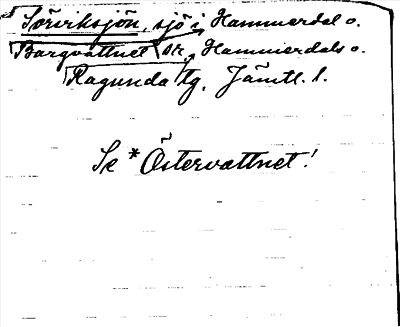 Sörviksjön, sjö i Hammerdal o.
Bargvattnet sk., Hammerdals o.
Ragunda tg, Jämtl. l.
Se *Östervattnet!